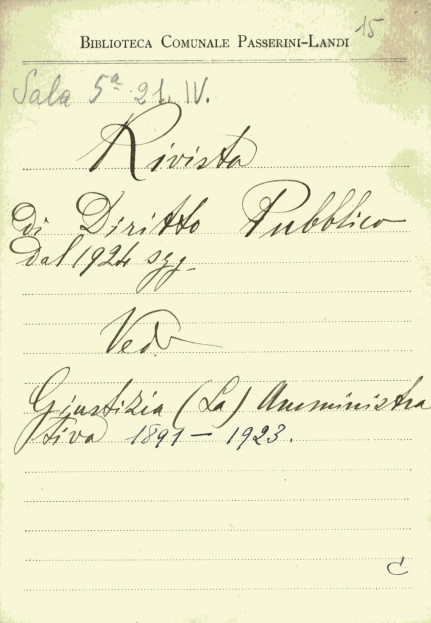 15
BIBLIOTECA COMUNALE PASSERINI-LANDI
Sala 5ª 21. IV.
Rivista
di Diritto Pubblico
dal 1924 sgg.
Vedi
Giustizia (La) Amministra
tiva 1891 - 1923.
C